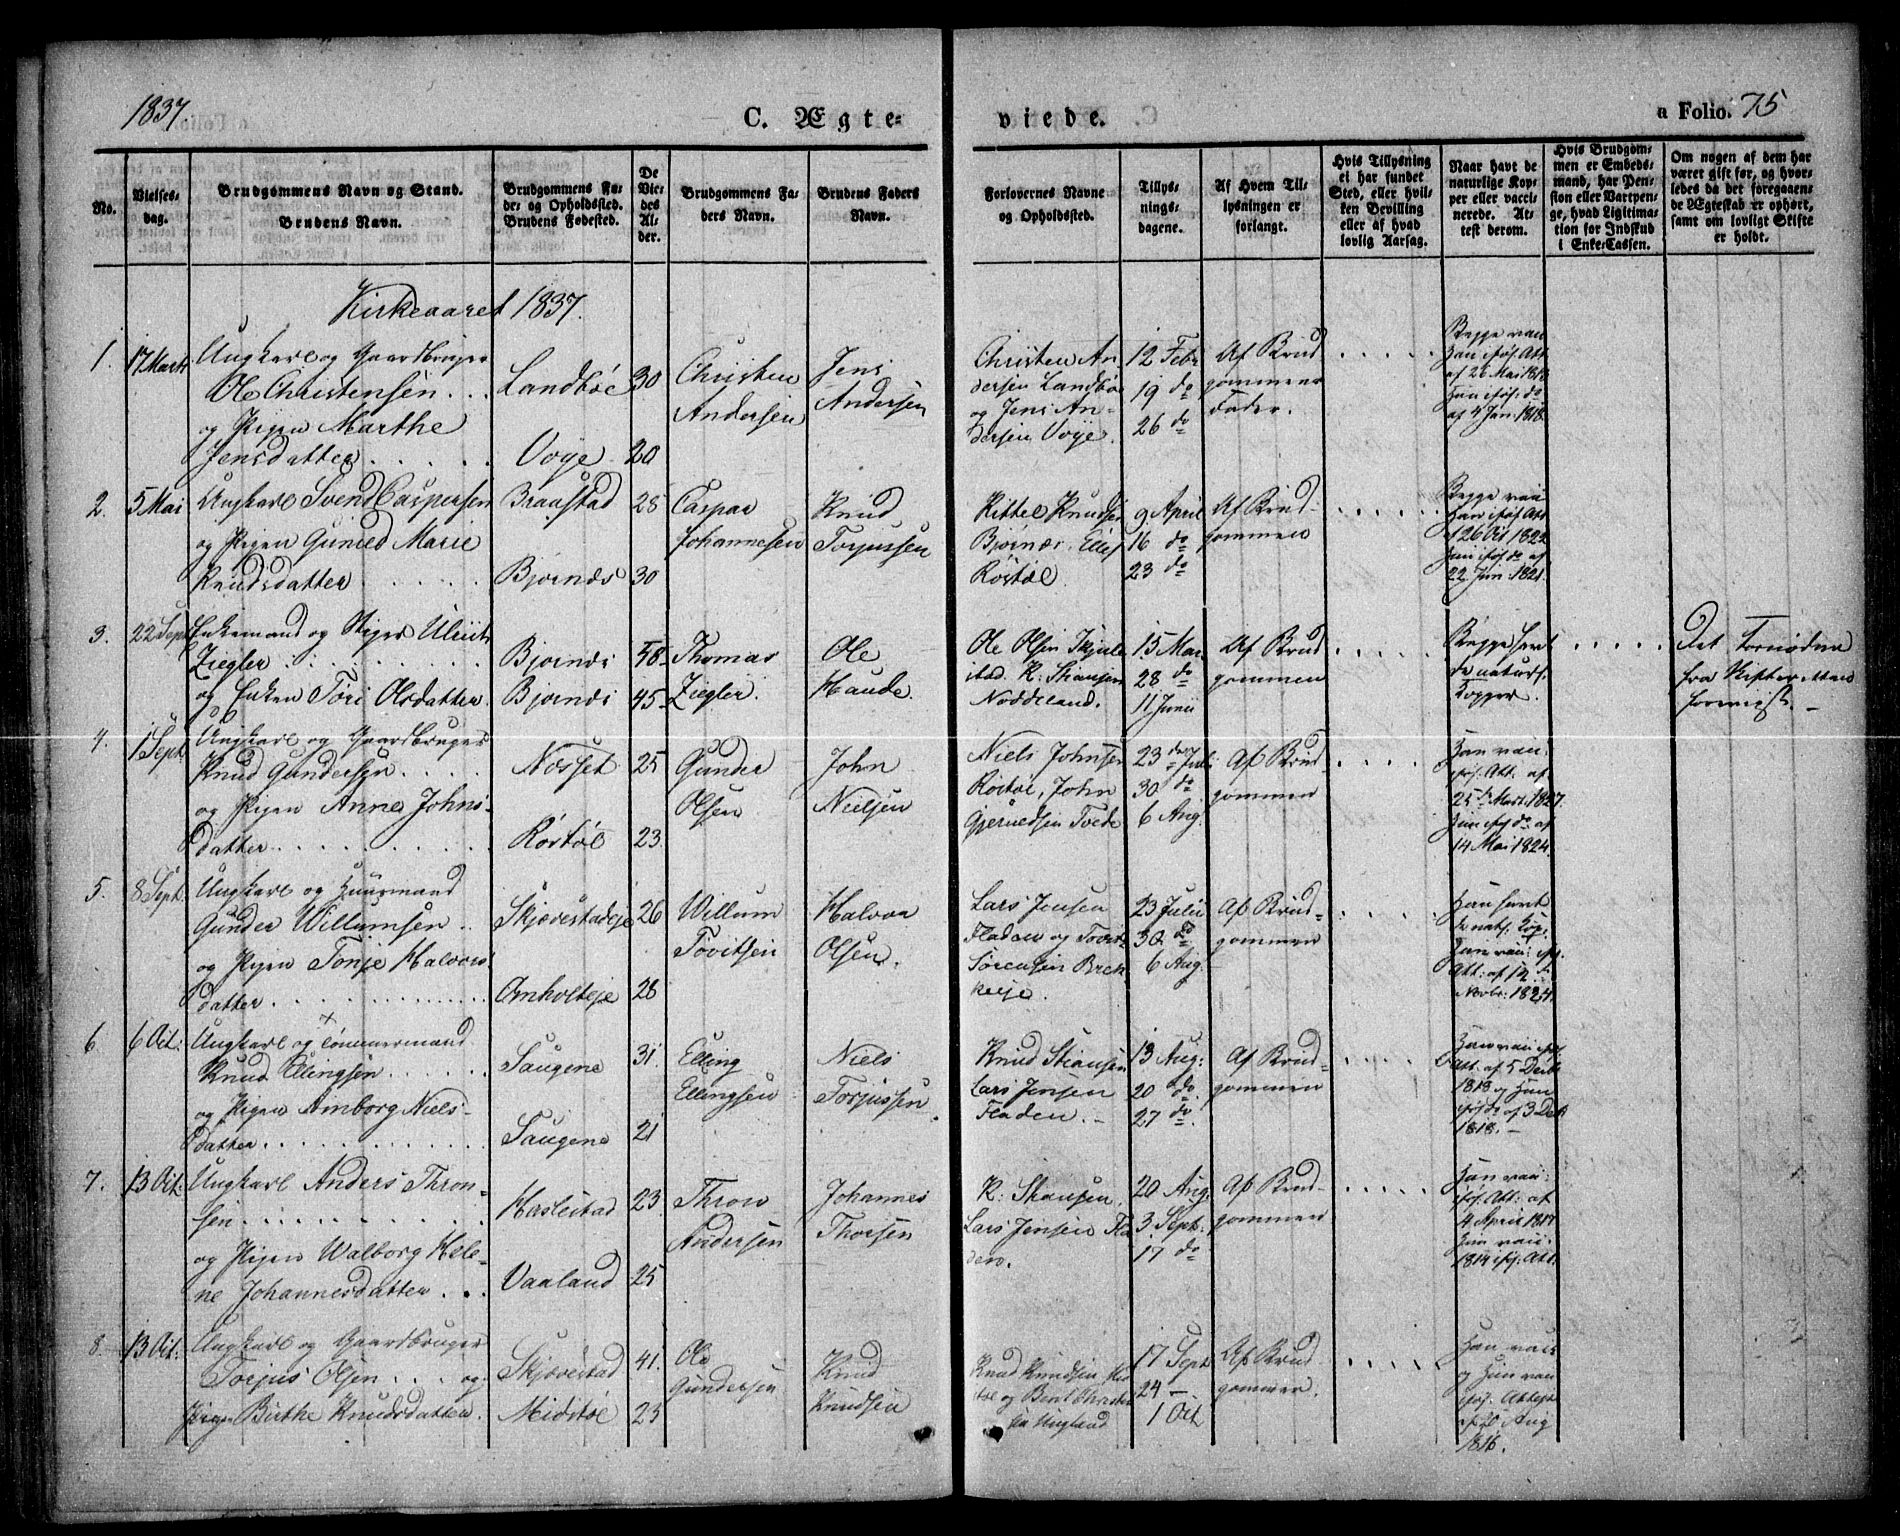 1837.
C. Ægte-
viede.
a Folio. 75
No.
Vielses-
dag.
Brudgommens Navn og Stand.
Brudens Navn.
Brudgommens Fø-
de- og Opholdssted.
Brudens Fødested.
De
Vie-
des
Al-
der.
Brudgommens Fa-
ders Navn.
Brudens Faders
Navn.
Forlovernes Navne
og Opholdssted.
Tillys-
nings-
dagene.
Af Hvem Til-
lysningen er
forlangt.
Hvis Tillysning
ei har fundet
Sted, eller hvil-
ken Bevilling
eller af hvad
lovlig Aarsag.
Naar havt de
naturlige Kop-
per eller vacci-
nerede. At-
test derom.
Hvis Brudgom-
men er Embeds-
mand, har Pen-
sion eller Vartpen-
ge, hvad Ligitima-
tion for Indskud
i Enke-Cassen.
Om nogen af dem har
været gift før, og hvor-
ledes da det foregaaen-
de Ægteskab er ophørt,
samt om lovligt Skifte
er holdt.
Kirkeaaret 1837.
1.
17 Marts
Ungkarl og Gaardbruger
Ole Christensen . . .
og Pigen Marthe
Jensdatter . . . . .
Landbøe
Voye
30
20
Christen
Andersen
Jens
Andersen
Christen An-
dersen Landbøe
og Jens An-
dersen Voye.
12 Febr
19 do
26 do
Af Brud
gommens
Fader.
Begge vac
Han iføl. Att
af 26 Mai 1813
Hun iføl. do
af 4 Jan. 1818.
2.
5 Mai
Ungkarl Svend Caspersen
og Pigen Gunild Marie
Knudsdatter . . . .
Braastad
Bjornæs
28
30
Caspar
Johannesen
Knud
Torjussen
Kittel Knudsen
Bjørnæs, Ellef
Røstøl.
9 April
16 do
23 do
Af Brud-
gommen
Begge vac
Han iføl Att
af 26 Oct 1822
Hun iføl do af
22 Jun: 1821.
3.
22 Sept
Enkemand og Stiger Ulrich
Ziegler . . . . . . .
og Enken Tori Olsdatter.
Bjornæs
Bjornæs
58
45
Thomas
Ziegler.
Ole
Haude.
Ole Olsen Skjule
stad. K: Stausen
Noddeland.
15 Mai
28 do
11 Junii
Af Brud
gommen
Begge havt
de naturl.
Kopper.
Det Fornødne
fra Skifteretten
forevist. -
4.
1 Sept
Ungkarl og Gaardbruger
Knud Gundersen . . . .
og Pigen Anne Johns-
datter . . . . . . . .
Nosset
Røstøl
25
23
Gunder
Olsen
John
Nielsen
Niels Johnsen
Røstøl, John
Gjerueldsen Tvede
23 de Juli
30 do
6 Aug.
Af Brud-
gommen
Han vac:
iføl. Att. af
25 Mart. 1827.
Hun iføl do af
14 Mai 1824.
5.
8 Sept.
Ungkarl og Huusmand
Gunder Willumsen . .
og Pigen Tonje Halvors-
datter . . . . . . . .
Skjævestadeje
Omholteje
26
28
Willum
Tovitsen
Halvor
Olsen.
Lars Jensen
Fladen og
Sørensen Brek
keeje.
23 Julii
30 do
6 Aug.
Af Brud-
gommen
Han havt
d. nat. Kop.
Hun vac: iføl.
Att: af 12 do
Novbr: 1824.
6.
6 Oct:
Ungkarl og Tømmermand
Knud Ellingsen . . . .
og Pigen Amborg Niels-
datter . . . . . . . .
Saugene
Saugene
31
21
Elling
Ellingsen
Niels
Torjussen
Knud Stiausen
Lars Jensen
Fladen. -
13 Aug:
20 do
27 do
Af Brud-
gommen
Han vac iføl
Att. af 5 Decbr
1813 og Hun
iføl do af 3 Dec
1818. -
7.
13 Oct:
Ungkarl Anders Thron-
sen . . . . . . . . .
og Pigen Walborg Hele-
ne Johannesdatter . . .
Haslestad
Vaaland
23
25
Thron
Andersen
Johannes
Thorsen
K: Stausen.
Lars Jensen Fla
den.
20 Aug.
3. Sept:
17 do
Af Brud-
gommen
Han vac:
iføl. Att: af
4 April 1817
Hun vac:
1814 iføl. Att.
8.
13 Oct:
Ungkarl og Gaardbruger
Torjus Olsen . . . og
Pigen Birthe Knudsdatter.
Skjævestad
Midtbøe
41
25
Ole
Gundersen
Knud
Knudsen
Knud Knudsen
og Bent Christen
sen Ugland
17 Sept
24 -
1 Oct
Af Brud
gommen.
Han vac
og Hun vac
iføl. Attest
af 20 Aug
1816.